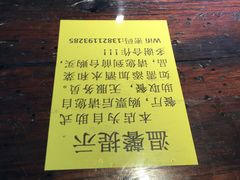 温馨提示
本店为自助式
餐厅，购票后请您自
助取餐，无服务员。
如需添加酒水和菜
品，请您到前台购买，
多谢合作！！！
Wifi 密码:13821193285